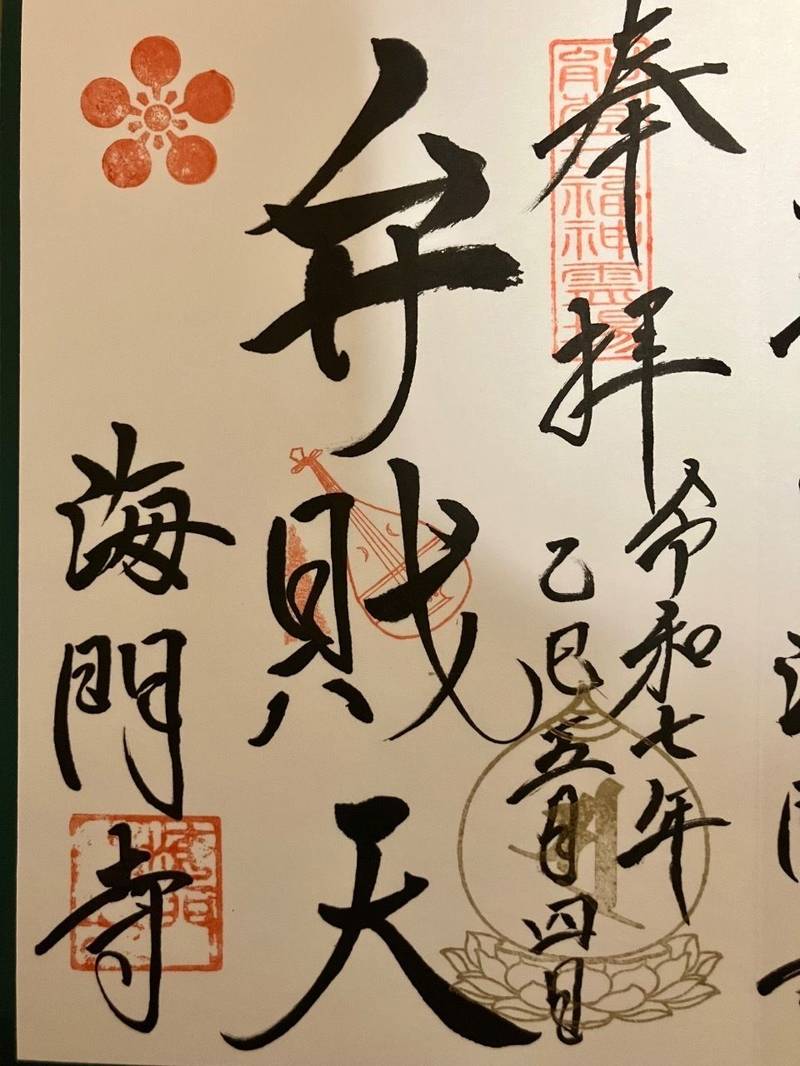 能登七福神霊場
奉拝
令和七年
乙巳五月四日
弁財天
海門寺